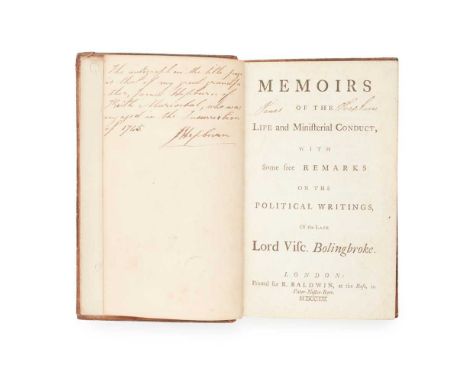 The autograph on the title page
is that of my great grandfa
ther, James Hepburn of
Keith Marischal, who was
engaged in the Insurrection
of 1745
JHepburn
MEMOIRS
OF THE
James Hepburn
LIFE and Ministerial CONDUCT,
WITH
Some free REMARKS
ON THE
POLITICAL WRITINGS,
OF the LATE
Lord Visc. Bolingbroke.
LONDON:
Printed for R. BALDWIN, at the Rose, in
Pater-Noster-Row.